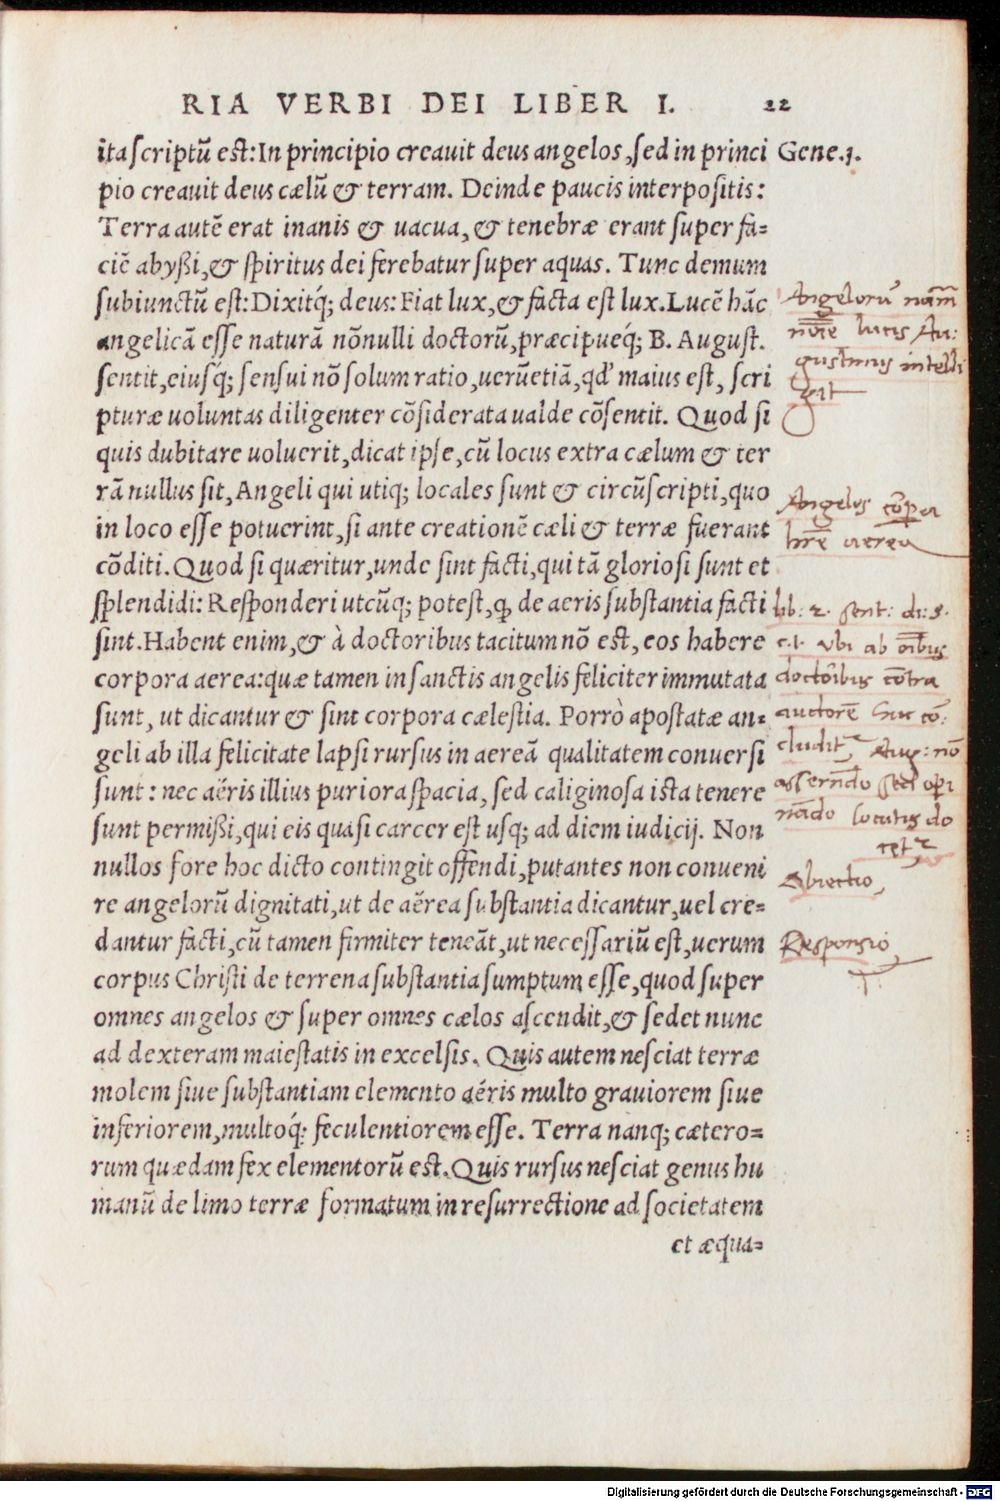 RIA VERBI DEI LIBER I. 22
ita scriptū est: In principio creavit deus angelos, sed in princi Gene.1.
pio creavit deus cælū & terram. Deinde paucis interpositis:
Terra autē erat inanis & uacua, & tenebræ erant super fa=
ciē abyßi, & spiritus dei ferebatur super aquas. Tunc demum
subiunctū est: Dixitq́; deus: Fiat lux, & facta est lux. Lucē hāc
angelicā esse naturā nōnulli doctorū, præcipueq́; B. August.
sentit, eiusq́; sensui nō solum ratio, uerūetiā, qd' maius est, scri
pturæ uoluntas diligenter cōsiderata ualde cōsentit. Quod si
quis dubitare uoluerit, dicat ipse, cū locus extra cælum & ter
rā nullus sit, Angeli qui utiq; locales sunt & circūscripti, quo
in loco esse potuerint, si ante creationē cæli & terræ fuerant
cōditi. Quod si quæritur, unde sint facti, qui tā gloriosi sunt et
splendidi: Responderi utcūq; potest, ꝙ de aeris substantia facti
sint. Habent enim, & à doctoribus tacitum nō est, eos habere
corpora aerea: quæ tamen in sanctis angelis feliciter immutata
sunt, ut dicantur & sint corpora cælestia. Porrò apostatæ an=
geli ab illa felicitate lapsi rursus in aereā qualitatem conuersi
sunt: nec aéris illius puriora spacia, sed caliginosa ista tenere
sunt permißi, qui eis quasi carcer est usq; ad diem iudicij. Non
nullos fore hoc dicto contingit offendi, putantes non conueni
re angelorū dignitati, ut de aërea substantia dicantur, uel cre=
dantur facti, cū tamen firmiter teneāt, ut necessariū est, uerum
corpus Christi de terrena substantia sumptum esse, quod super
omnes angelos & super omnes cælos ascendit, & sedet nunc
ad dexteram maiestatis in excelsis. Quis autem nesciat terræ
molem siue substantiam elemento aéris multo grauiorem siue
inferiorem, multoq́; feculentiorem esse. Terra nanq; cætero=
rum quædam fex elementorū est. Quis rursus nesciat genus hu
manū de limo terræ formatum in resurrectione ad societatem
et æqua=
Angelorū nām
noīe lucis Au:
gustinus intelli
git
Angelos
aerea
lib: 2. sent: di: 8.
c.1. Vbi ab oībus
doctoribus cōtra
auctorē
cludit, Aug: nō
asserendo sed opi
nādo locutus do
cet.r
Obiectio,
Responsio,
Digitalisierung gefördert durch die Deutsche Forschungsgemeinschaft - DFG